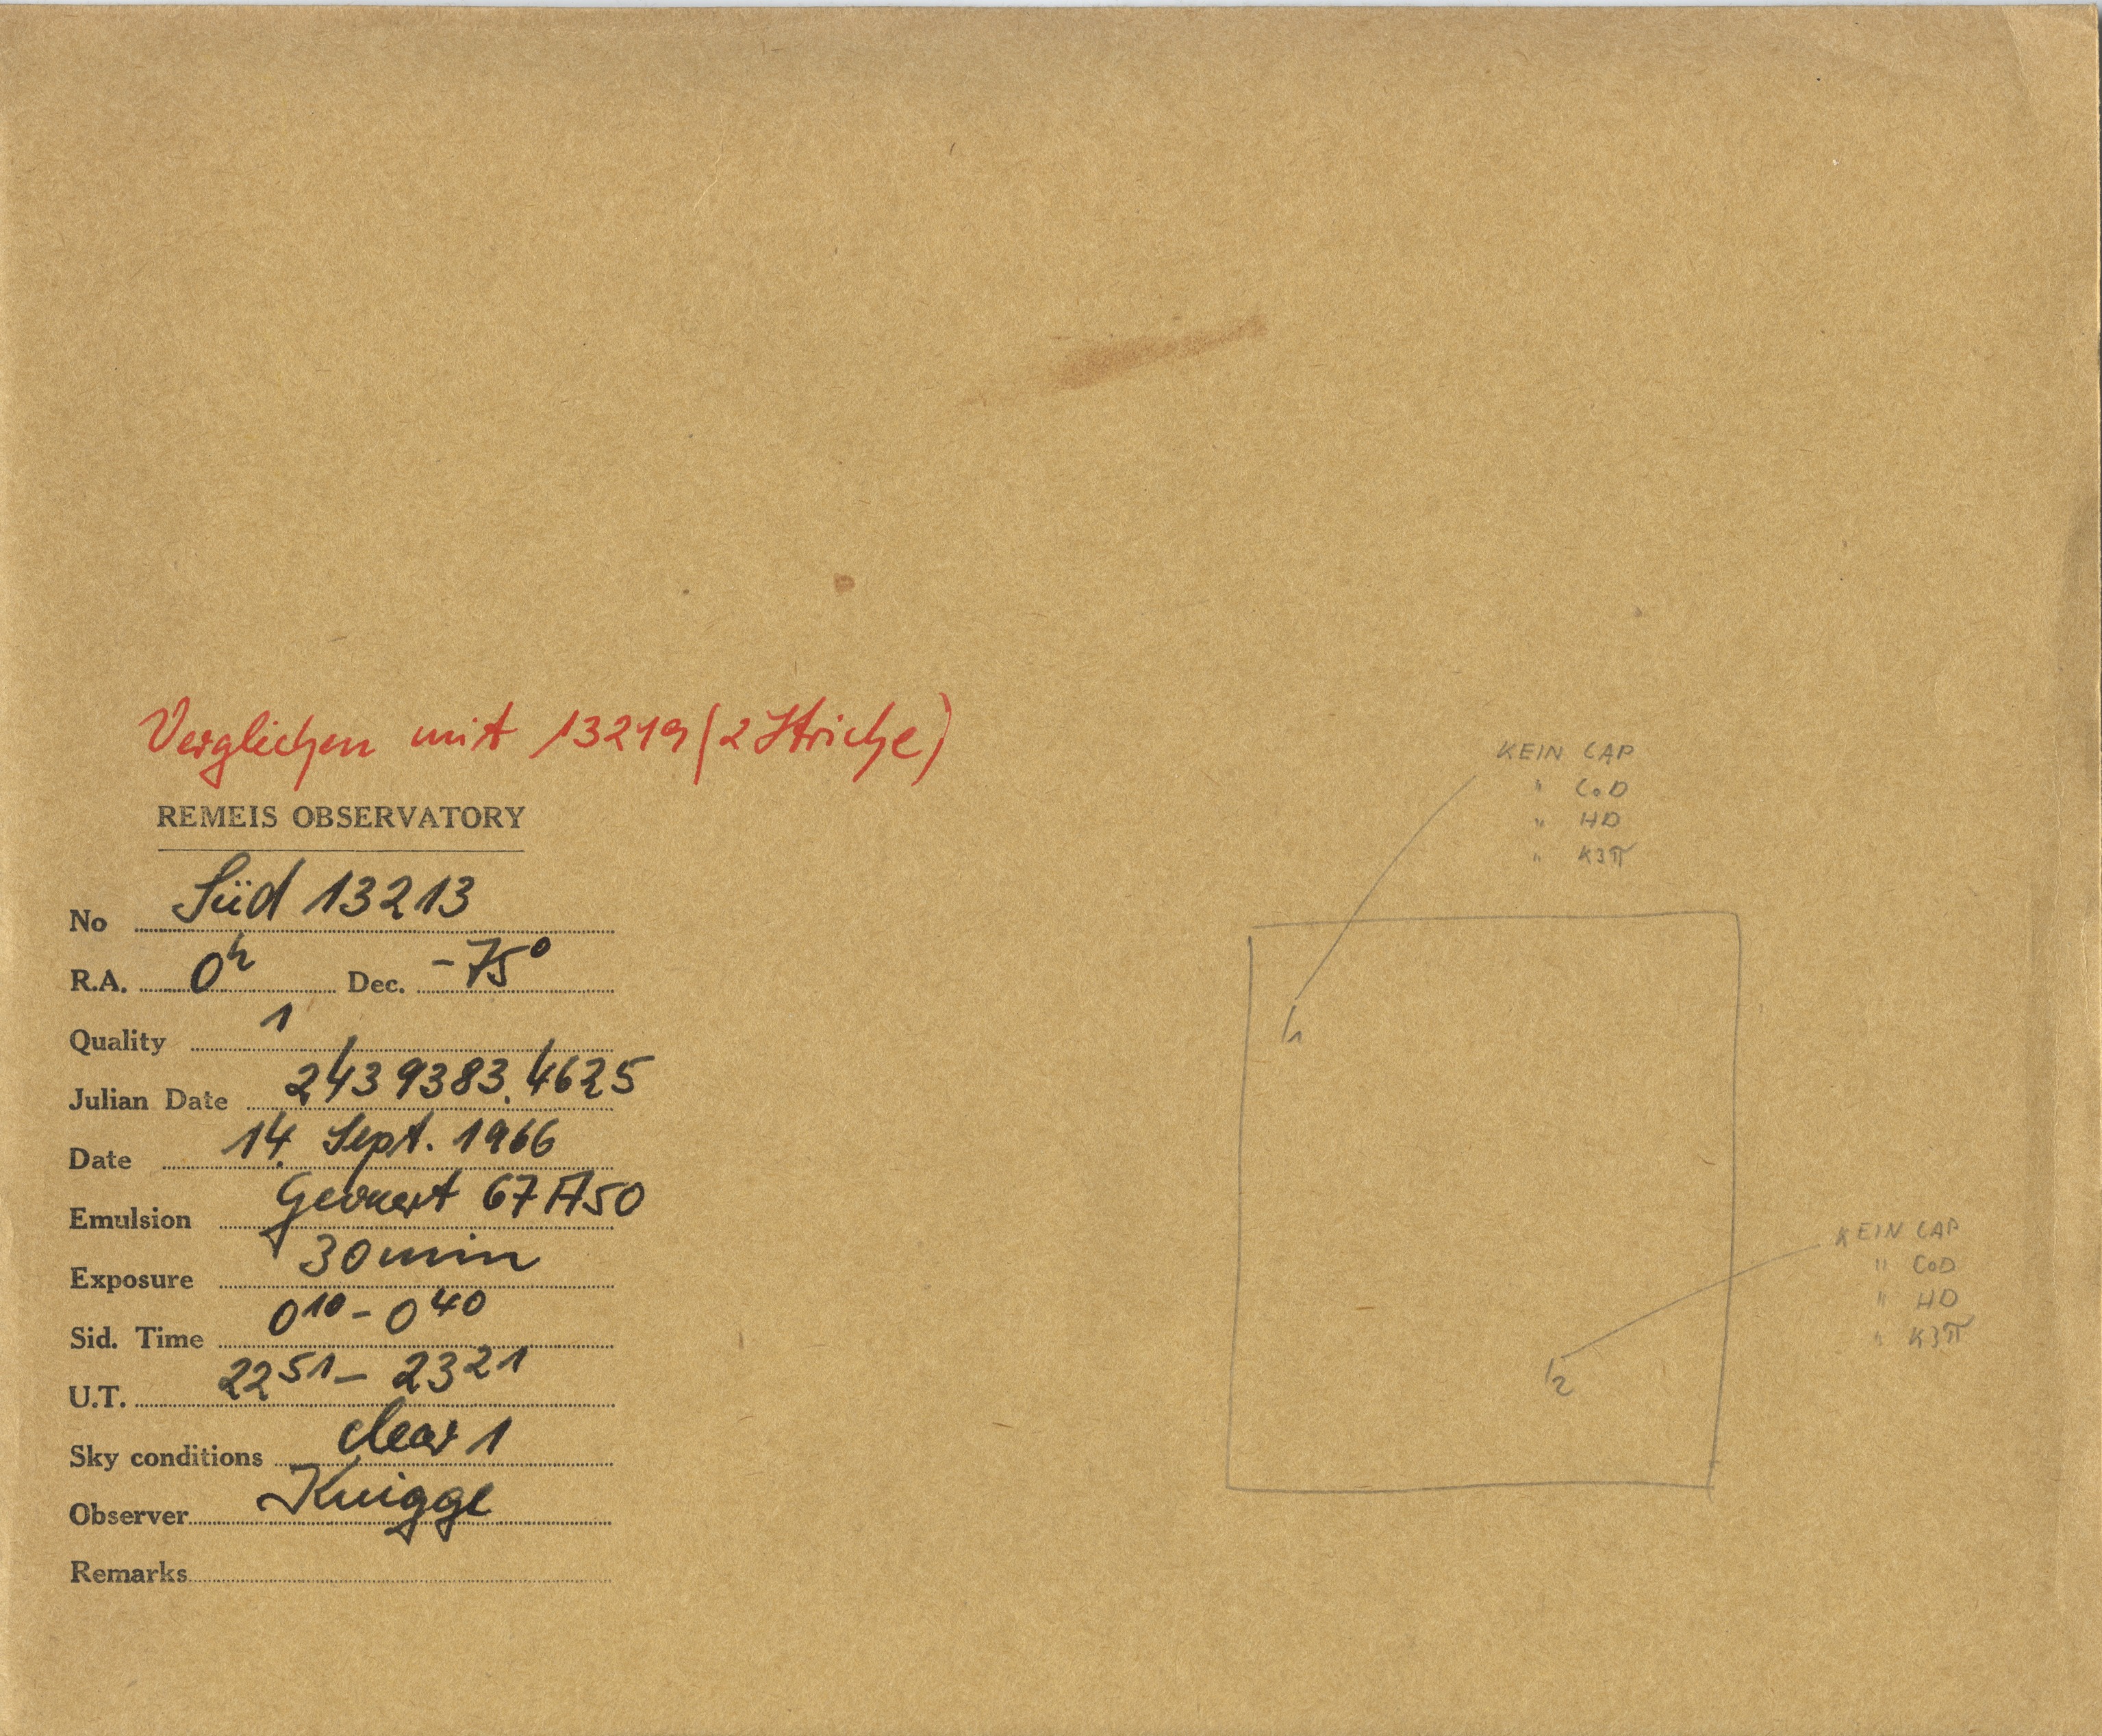 Verglichen mit 13219 (2 Striche)
REMEIS OBSERVATORY
No Süd 13213
R.A. 0h Dec. -75°
Quality 1
Julian Date 2439383.4625
Date 14. Sept. 1966
Emulsion Gevaert 67A50
Exposure 30 min
Sid. Time 0 10 - 0 40
U.T. 22 51 - 23 21
Sky conditions clear 1
Observer Knigge
Remarks
KEIN CAP
" CoD
" HD
" КЗП
1
KEIN CAP
" CoD
" HD
" КЗП
2